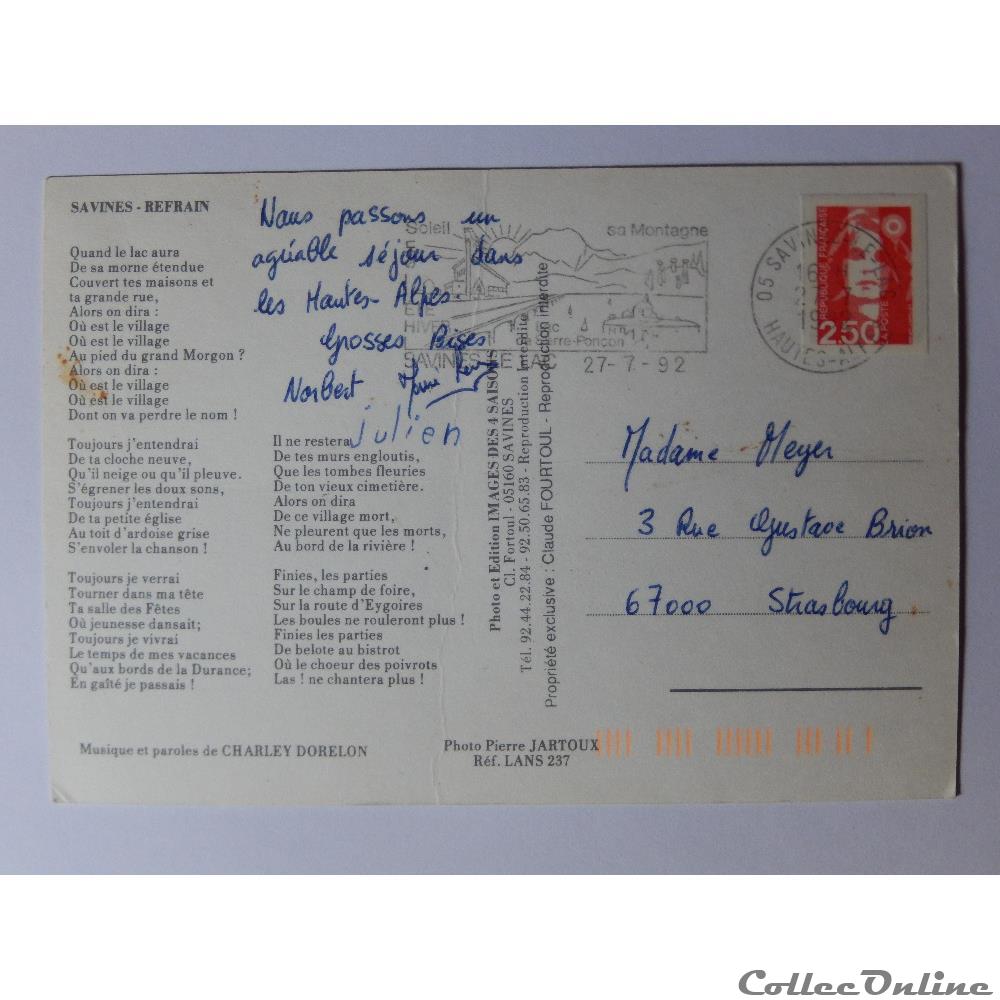 SAVINES - REFRAIN
Quand le lac aura
De sa morne étendue
Couvert tes maisons et
ta grande rue,
Alors on dira :
Où est le village
Où est le village
Au pied du grand Morgon ?
Alors on dira :
Où est le village
Où est le village
Dont on va perdre le nom !
Toujours j'entendrai
De ta cloche neuve,
Qu'il neige ou qu'il pleuve.
S'égrener les doux sons,
Toujours j'entendrai
De ta petite église
Au toit d'ardoise grise
S'envoler la chanson !
Toujours je verrai
Tourner dans ma tête
Ta salle des Fêtes
Où jeunesse dansait;
Toujours je vivrai
Le temps de mes vacances
Qu'aux bords de la Durance;
En gaîté je passais !
Il ne restera
De tes murs engloutis,
Que les tombes fleuries
De ton vieux cimetière.
Alors on dira
De ce village mort,
Ne pleurent que les morts,
Au bord de la rivière !
Finies, les parties
Sur le champ de foire,
Sur la route d'Eygoires
Les boules ne rouleront plus !
Finies les parties
De belote au bistrot
Où le choeur des poivrots
Las ! ne chantera plus !
Musique et paroles de CHARLEY DORELON
Nous passons un
agréable séjour dans
les Hautes-Alpes.
Grosses Bises
Norbert
julien
Soleil
sa Montagne
son
ETE
HIVER
Lac
Serre-Ponçon
SAVINES LE LAC
27-7-92
Photo et Edition IMAGES DES 4 SAISONS
Cl. Fortoul - 05160 SAVINES
Tél. 92.44.22.84 - 92.50.65.83 - Reproduction Interdite
Propriété exclusive : Claude FOURTOUL - Reproduction interdite
Photo Pierre JARTOUX
Réf. LANS 237
05 SAVINES
HAUTES-ALPES
REPUBLIQUE FRANÇAISE
LA POSTE
2,50
Madame Meyer
3 Rue Gustave Brion
67000 Strasbourg
CollecOnline